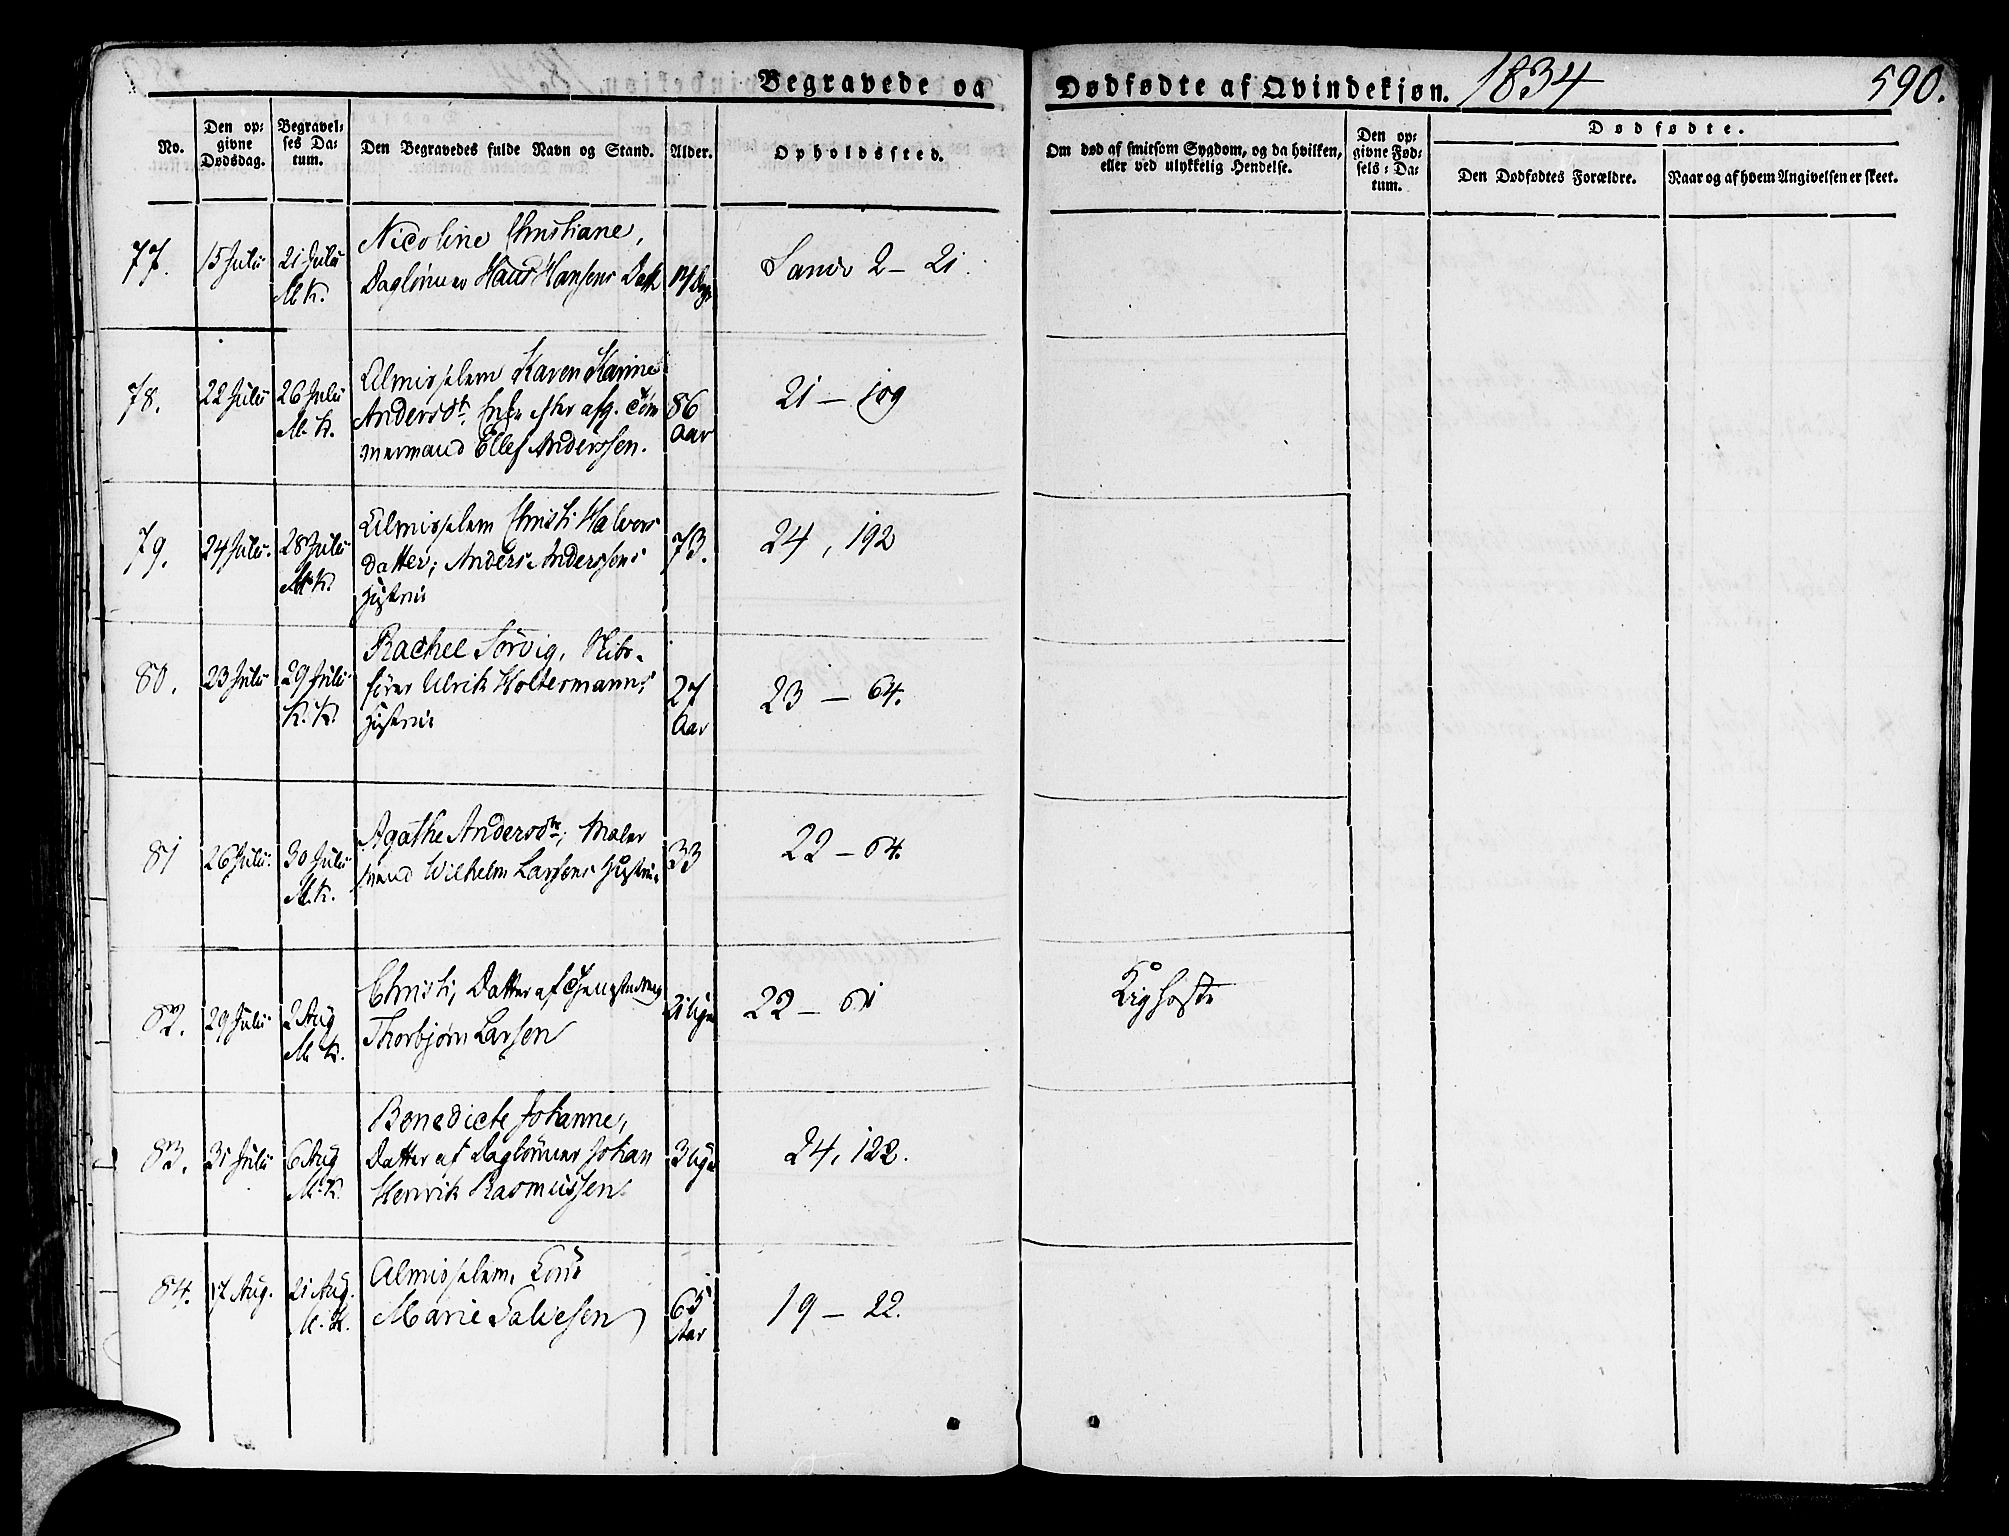 Begravede og Dødfødte af Qvindekjøn. 1834 590.
No.
Den op-
givne
Dødsdag.
Begravel-
ses Da-
tum.
Den Begravedes fulde Navn og Stand.
Alder.
Opholdssted.
Om død af smitsom Sygdom, og da hvilken,
eller ved ulykkelig Hendelse.
Den op-
givne Fød-
sels-Da-
tum.
Dødfødte.
Den Dødfødtes Forældre.
Naar og af hvem Angivelsen er skeet.
77. 15 Julii 21 Julii M. K.
Nicoline Christiane,
Daglønner Hans Hansens Datt
14 Dage
2 - 21.
78. 22 Julii 26 Julii M. K.
Almisselem Karen Marine
Andersdt. Enke efter afg. Töm
mermand Ellef Anderssen.
86 Aar
21 - 109
79. 24 Julii. 28 Julii M. K.
Almisselem Christi Halvors
datter; Anders Anderssens
Hustrue
73.
24, 192
80. 23 Julii 29 Julii K. K.
Rachel Sörvig,
förer Ulrik Holtermanns
Hustrue
27 Aar
23 - 64.
81 26 Julii. 30 Julii M. K.
Agathe Andersdtr; Maler
svend Wilhelm Larsens Hustrue
33
22 - 64.
82. 29 Julii 2 Aug M. K.
Christi, Datter af
Thorbjørn Larsen
21 Uger
22 - 61
Kighoste
83. 31 Julii 6 Aug M. K.
Benedicte Johanne,
Datter af Daglönner Johan
Henrik Rasmussen
3 Uger
24, 122.
84. 17 Aug. 21 Aug. M. K.
Almisselem,
Marie Salvesen
65 Aar
19 - 22.